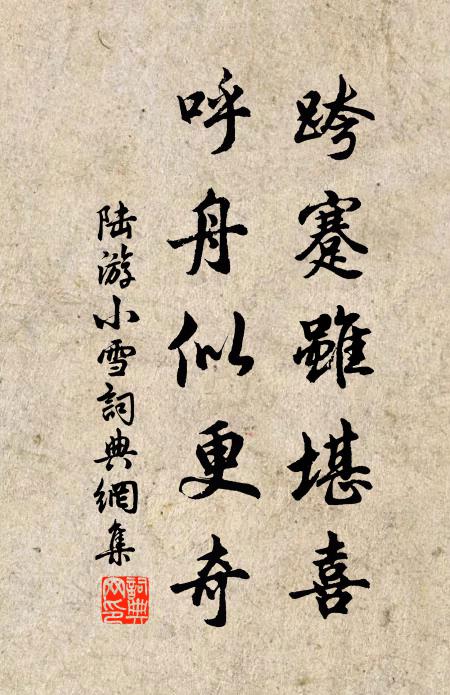 跨蹇雖堪喜
呼舟似更奇
陆游小雪詞典網集
詞典